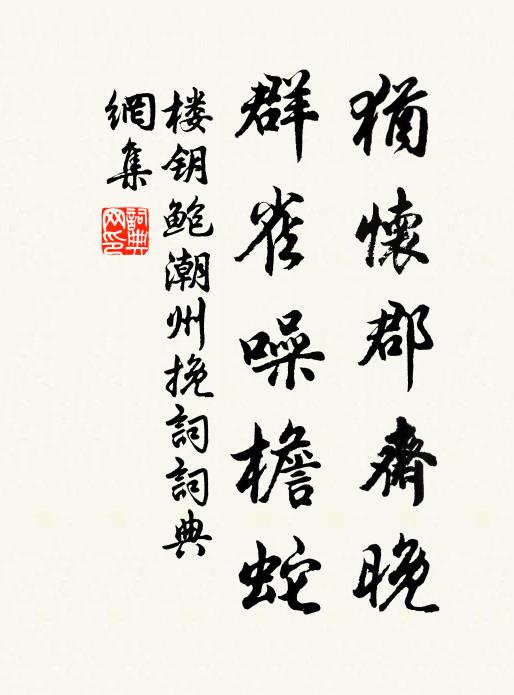 猶懷郡齋晚
群雀噪檐蛇
楼钥鲍潮州挽詞詞典
網集
詞典網印